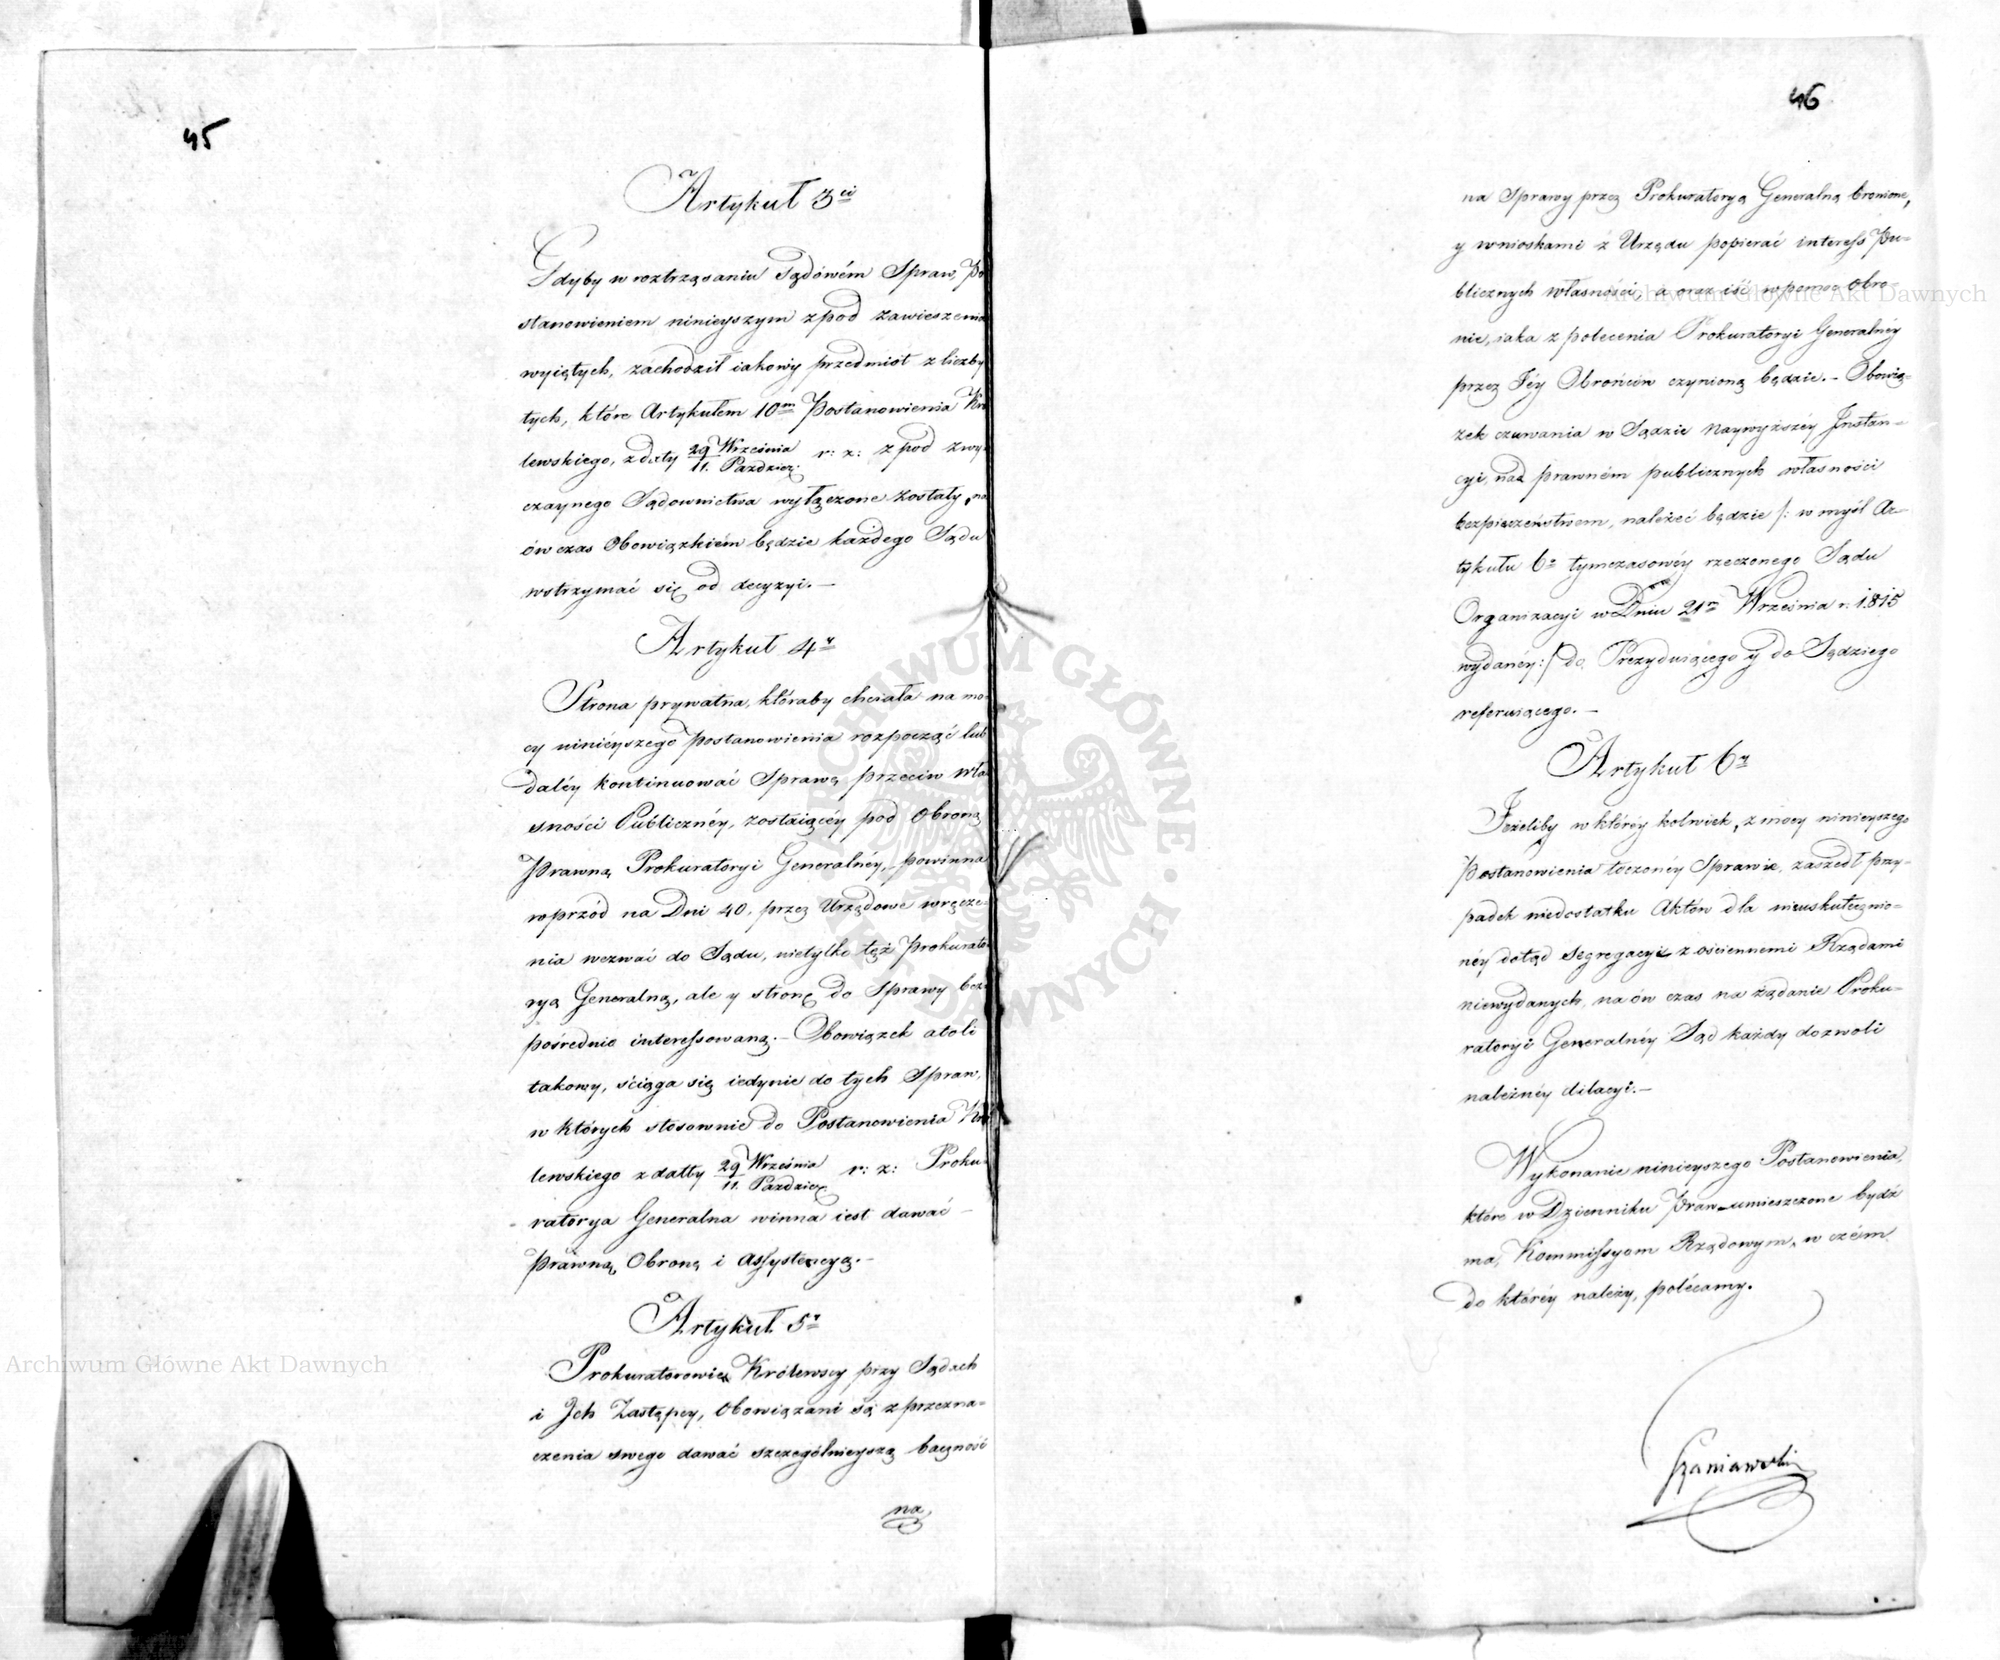 45
Artykuł 3ci
Gdyby w roztrząsaniu Sądowém Spraw, Po
stanowieniem ninieyszym z pod zawieszenia
wyiętych, zachodził iakowy przedmiot z liczby
tych, które Artykułem 10m Postanowienia Kró
lewskiego, z daty 29 Września / 11. Paździer: r: z: z pod zwy
czaynego Sądownictwa wyłączone zostały, na
ów czas Obowiązkiém będzie każdego Sądu
wstrzymać się od decyzyi.—
Artykuł 4y
Strona prywatna, któraby chciała na mo-
cy ninieyszego Postanowienia rozpocząć lub
daléy kontinuować Sprawę przeciw wła
sności Publicznéy, zostaiącéy pod Obroną
Prawną Prokuratoryi Generalnéy, powinna
wprzód na Dni 40, przez Urzędowe wręcze-
nia wezwać do Sądu, nietylko też Prokurato
ryą Generalną, ale y stronę do Sprawy bez
pośrednio interessowaną.— Obowiązek atoli
takowy, ściąga się iedynie do tych Spraw,
w których stosownie do Postanowienia Kró
lewskiego z datty 29 Września / 11. Paździer: r: z: Proku-
ratorya Generalna winna iest dawać —
Prawną Obronę i Assystencyą.—
Artykuł 5y
Prokuratorowie Królewscy przy Sądach
i Jch Zastępcy, Obowiązani są z przezna-
czenia swego dawać szczególnieyszą baczność
na
46
na Sprawy przez Prokuratoryą Generalną bronione,
y wnioskami z Urzędu popierać interess Pu-
blicznych własności, a oraz iść w pomoc obro-
nie, iaka z polecenia Prokuratoryi Generalnéy
przez Jéy Obrońców czynioną będzie.— Obowią-
zek czuwania w Sądzie Naywyższéy Jnstan-
cyi, nad prawném publicznych własności
bezpieczeństwem, należeć będzie /: w myśl Ar-
tykułu 6o tymczasowéy rzeczonego Sądu
Organizacyi w Dniu 21m Września r. 1815
wydanéy :/ do Prezyduiącego y do Sędziego
referuiącego.—
Artykuł 6y
Jeżeliby w któréy kolwiek, z mocy ninieyszego
Postanowienia toczonéy Sprawie, zaszedł przy-
padek niedostatku Aktów dla nieuskutecznio-
néy dotąd Segregacyi z ościennemi Rządami
niewydanych, na ów czas na żądanie Proku-
ratoryi Generalnéy Sąd każdy dozwoli
należnéy dilacyi.—
Wykonanie ninieyszego Postanowienia,
które w Dzienniku Praw umieszczone bydź
ma, Kommissyom Rządowym, w czém
do któréy należy, polécamy.
Szaniawski
Archiwum Główne Akt Dawnych
Archiwum Główne Akt Dawnych
ARCHIWUM GŁÓWNE AKT DAWNYCH